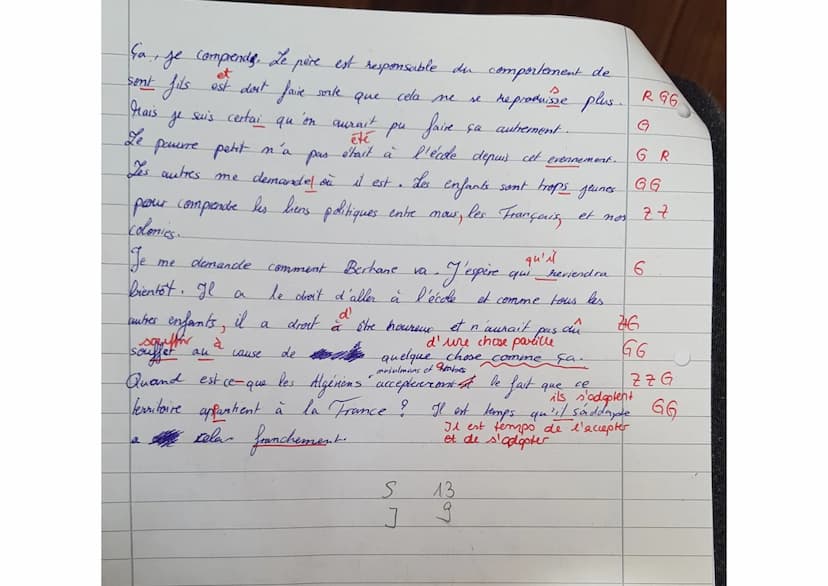 Ça, je comprends. Le père est responsable du comportement de
et
sont fils est doit faire sorte que cela ne se reproduisse plus. R GG
Mais je suis certai qu'on aurait pu faire ça autrement. G
été
Le pauvre petit n'a pas était à l'école depuis cet evennement. G R
Les autres me demande où il est. Les enfants sont trops jeunes GG
pour comprendre les liens politiques entre nous, les Français, et nos ZZ
colonies.
qu'il
Je me demande comment Berhane va. J'espère qui reviendra G
bientôt. Il a le droit d'aller à l'école et comme tous les
d'
autres enfants, il a droit à être heureux et n'aurait pas dû ZG
souffrir à d'une chose pareille
souffet au cause de quelque chose comme ça. GG
musulmans et
Quand est-ce-que les Algériens accepteront le fait que ce ZZG
ils s'adaptent
territoire appartient à la France ? Il est temps qu'il GG
Il est temps de l'accepter
et de s'adapter
a cela franchement.
S 13
J 9